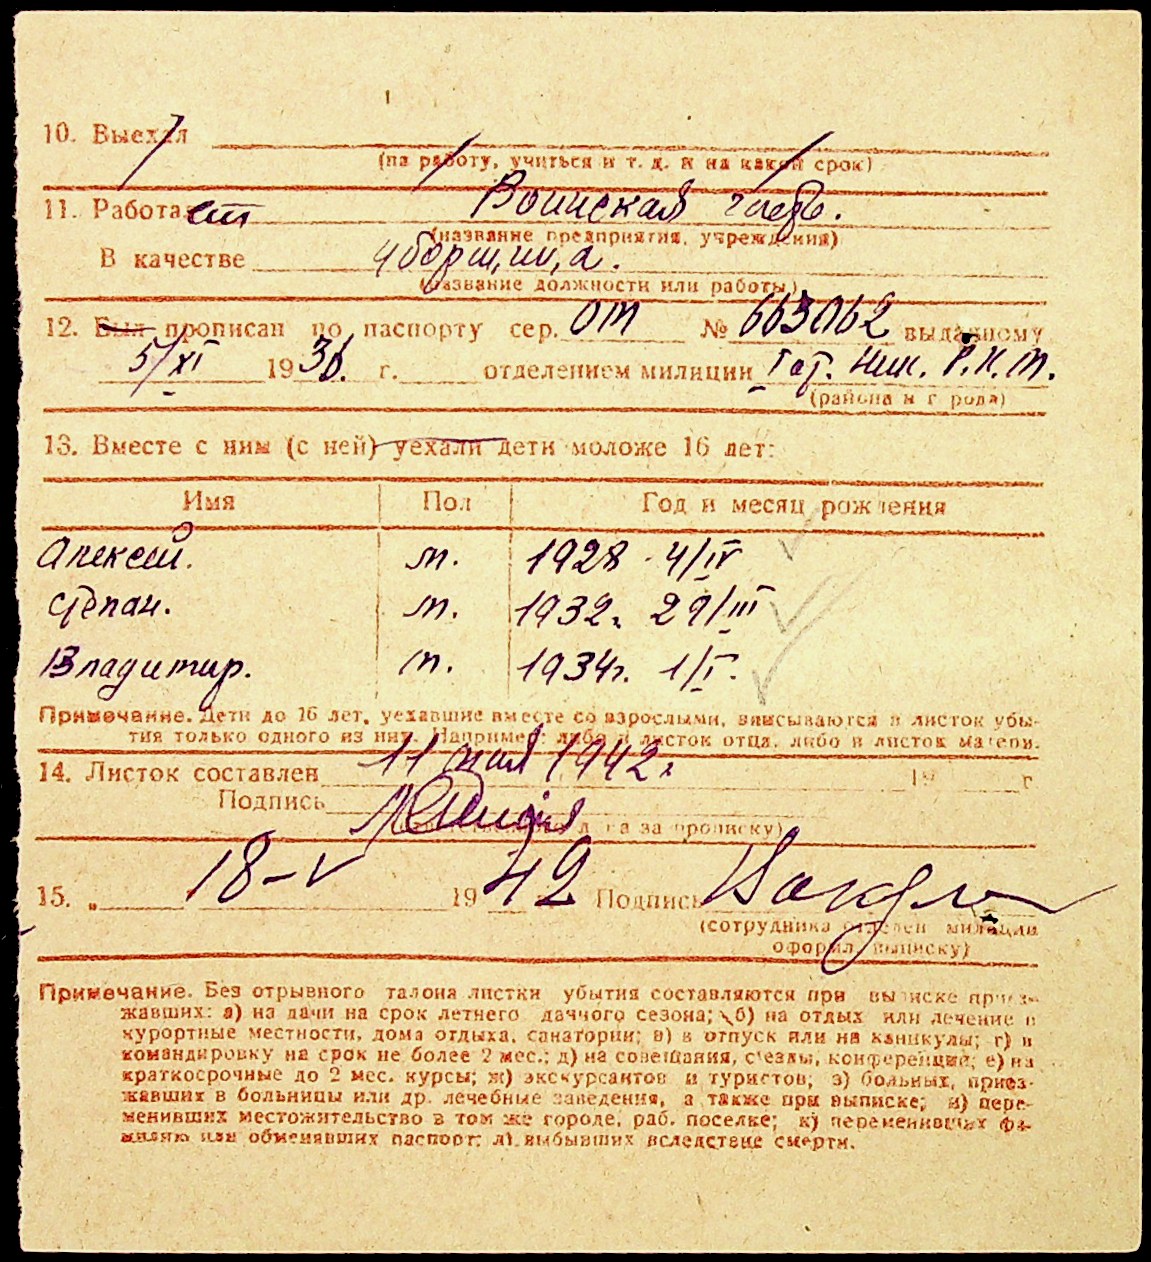 10. Выехал
(на работу, учиться и т. д. и на какой срок)
11. Работает Воинская часть.
(название предприятия, учреждения)
В качестве уборщица.
(название должности или работы)
12. Был прописан по паспорту сер. ОТ № 663062 выданному
5/XI 1936. г. отделением милиции Гор. Р.К.М.
(района и города)
13. Вместе с ним (с ней) уехали дети моложе 16 лет:
Имя Пол Год и месяц рождения
Алексей. м. 1928 4/IV
Степан. м. 1932г. 29/III
Владимир. м. 1934г. 1/I.
Примечание. Дети до 16 лет, уехавшие вместе со взрослыми, вписываются в листок убы-
тия только одного из них. Например либо в листок отца, либо в листок матери.
14. Листок составлен 11 мая 1942г. 19 г
Подпись
лица за прописку)
15. „ 18-V 1942 Подпись
(сотрудника отделен милиции
оформл. выписку)
Примечание. Без отрывного талона листки убытия составляются при выписке приез-
жавших: а) на дачи на срок летнего дачного сезона; б) на отдых или лечение в
курортные местности, дома отдыха, санатории; в) в отпуск или на каникулы; г) в
командировку на срок не более 2 мес.; д) на совещания, съезды, конференции; е) на
краткосрочные до 2 мес. курсы; ж) экскурсантов и туристов; з) больных, приез-
жавших в больницы или др. лечебные заведения, а также при выписке; и) пере-
менивших местожительство в том же городе, раб. поселке; к) переменивших фа-
милию или обменявших паспорт; л) выбывших вследствие смерти.